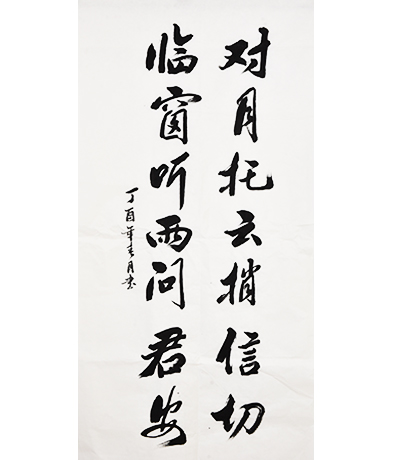 对月托云捎信切
临窗听雨问君安
丁酉年春月书